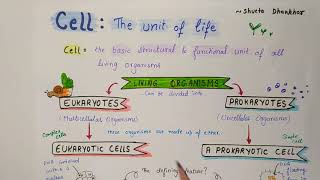 Cell: The unit of life
~ Shweta Dhankhar
Cell: the basic structural & functional unit of all
living organisms
LIVING ORGANISMS
Can be divided into
EUKARYOTES
PROKARYOTES
(Multicellular Organisms)
(Unicellular Organisms)
Complex cells
these organisms are made up of either
Simple cell
EUKARYOTIC CELLS
A PROKARYOTIC CELL
The defining feature?